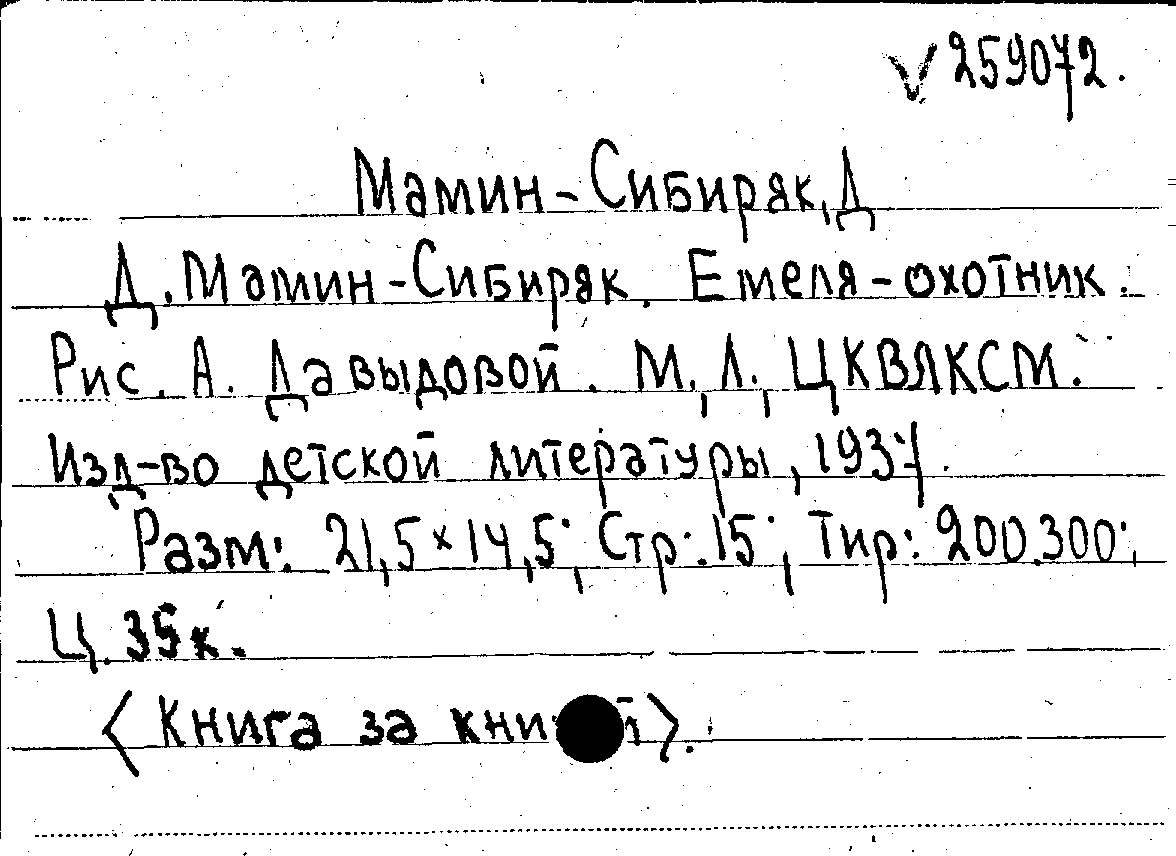 V 259072.
Мамин-Сибиряк, Д
Д. Мамин-Сибиряк. Емеля-охотник.
Рис. А. Давыдовой. М, Л, ЦКВЛКСМ.
Изд-во детской литературы, 1937.
Разм: 21,5×14,5; Стр: 15; Тир: 200.300;
Ц. 35 к.
〈Книга за